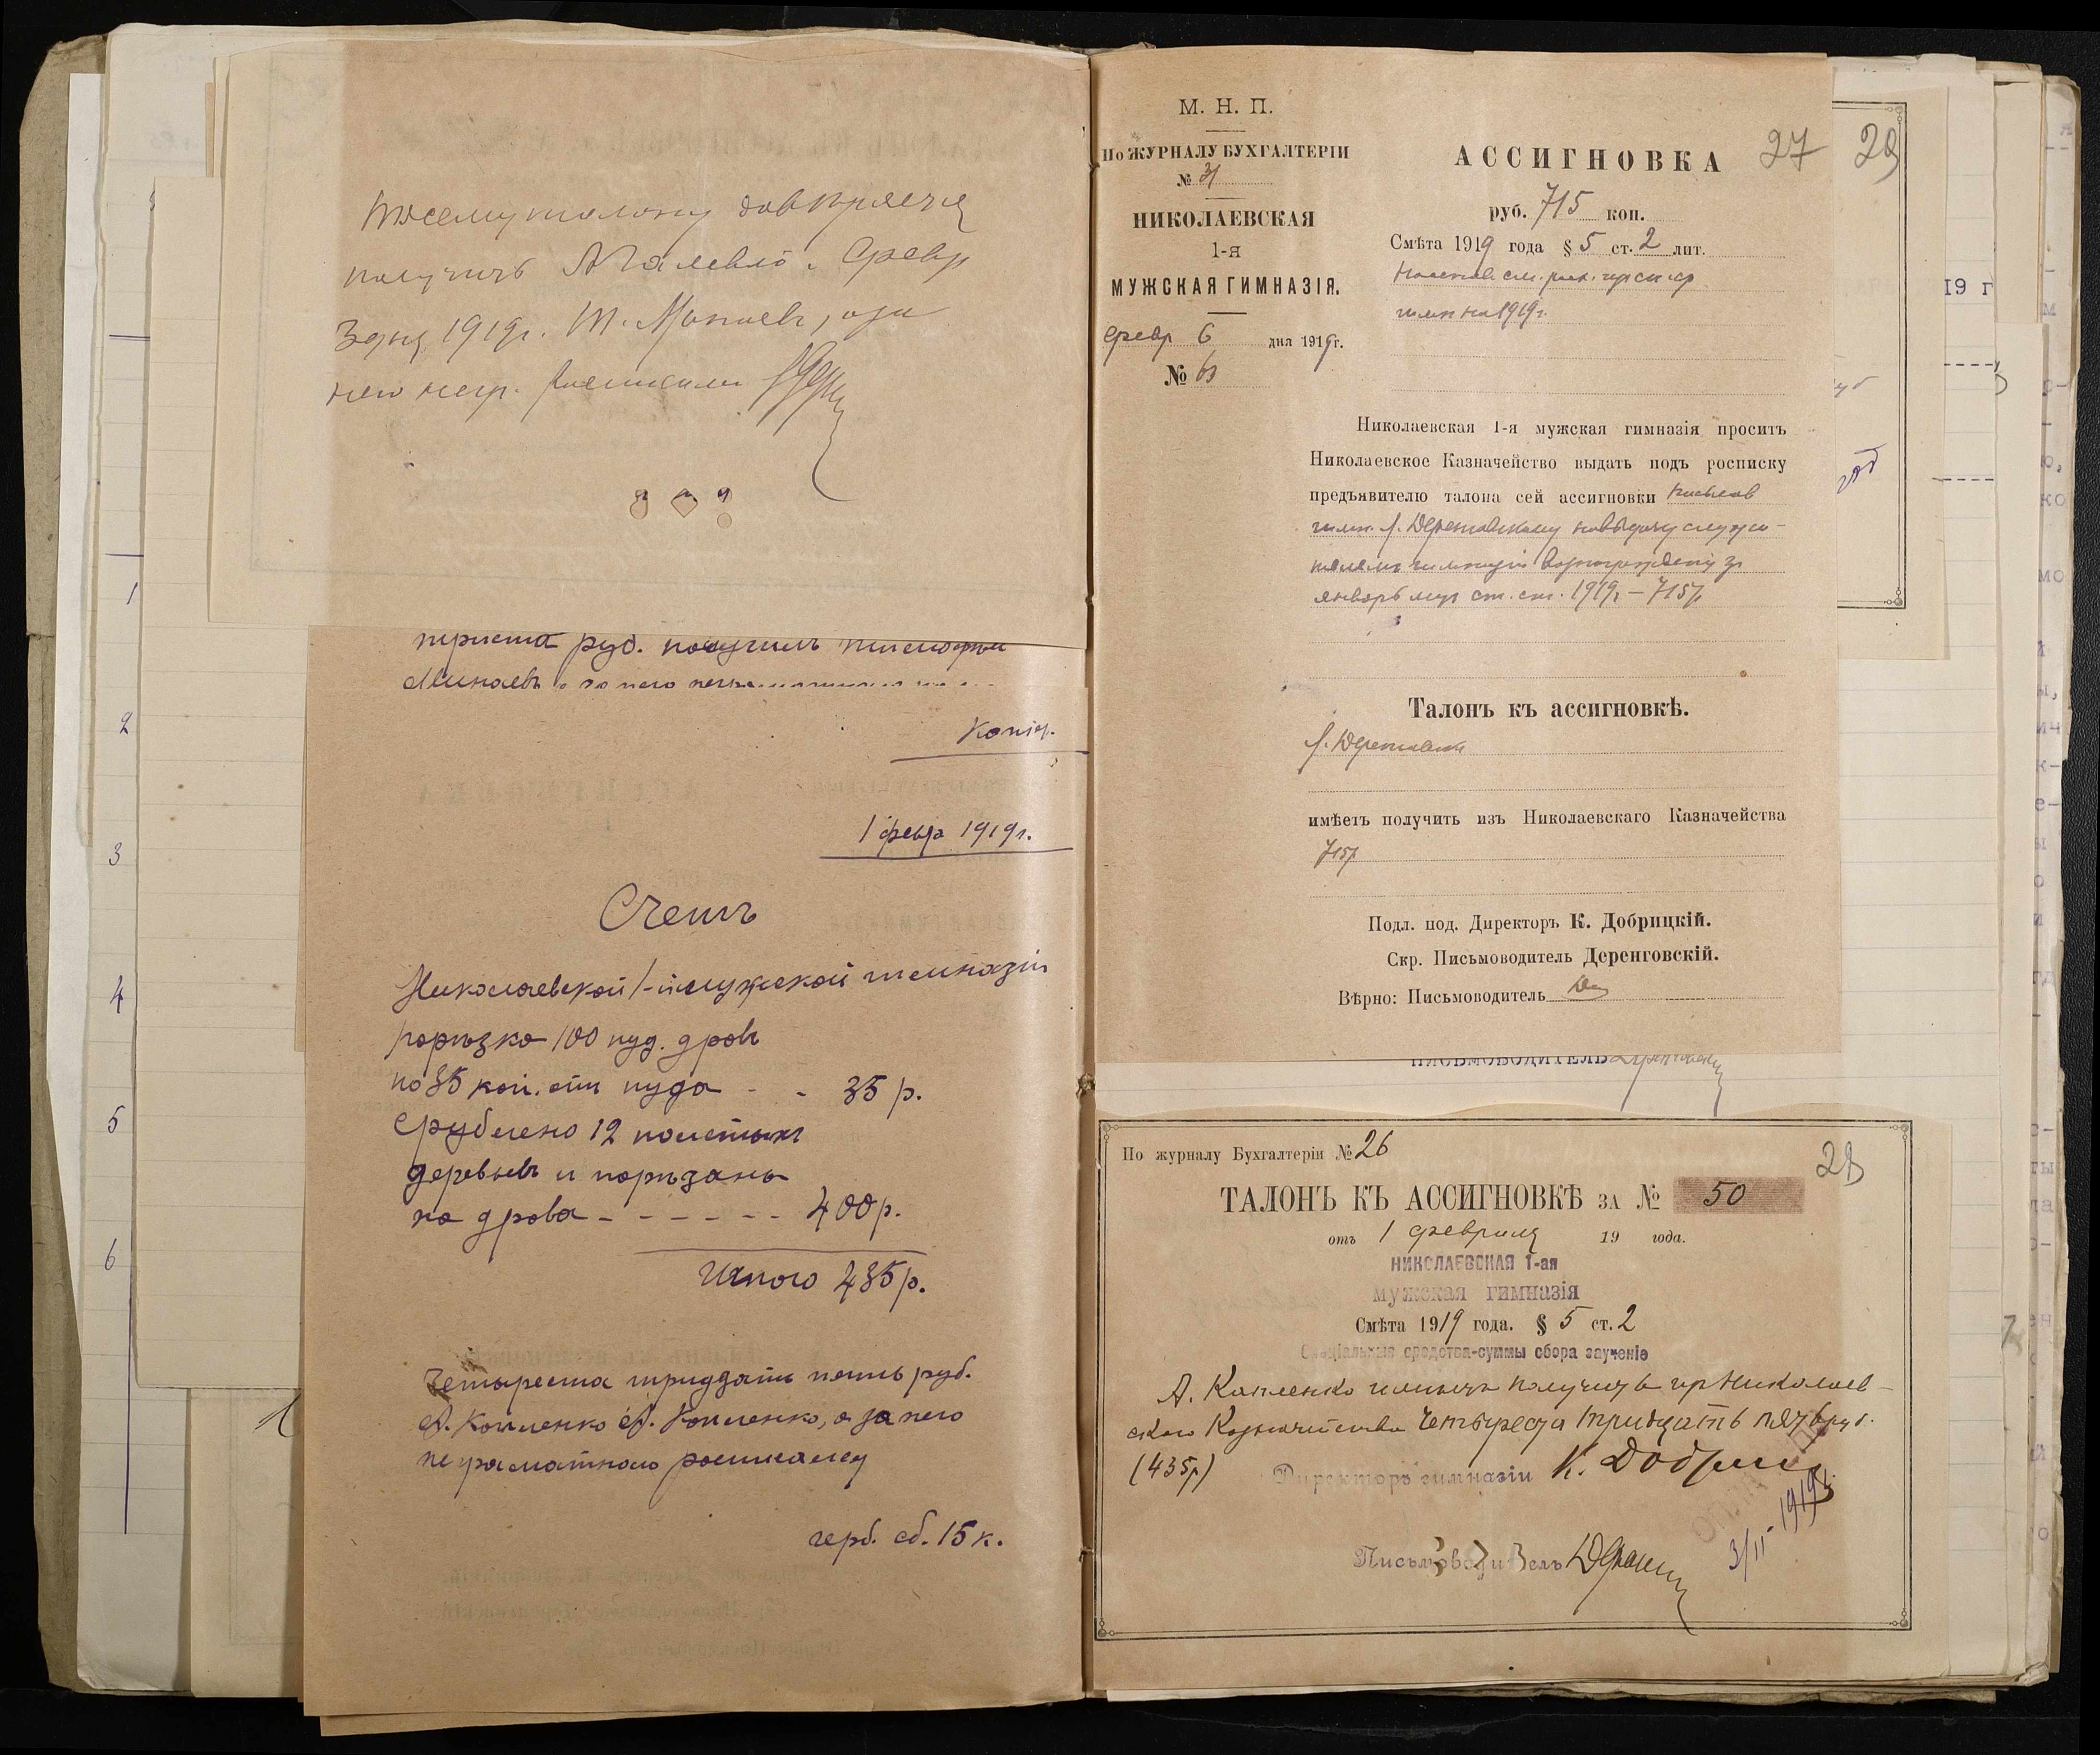 получить
3 дня 1919г. Т. Минаев, а за
него негр.
триста руб. получилъ Тимофей
Минаевъ а за него
Копія.
1 февр 1919г.
Счетъ
Николаевской 1-й мужской гимназіи
порѣзка 100 пуд. дровъ
по 35 коп. отъ пуда - - 35 р.
Срублено 12
деревьевъ и порѣзаны
на дрова - - - - - - 400 р.
Итого 435 р.
Четыреста тридцать пять руб.
А. Копленко А. Копленко, а за него
неграмотного росписался
герб. сб. 15 к.
М. Н. П.
По ЖУРНАЛУ БУХГАЛТЕРІИ
№ 31
НИКОЛАЕВСКАЯ
1-я
МУЖСКАЯ ГИМНАЗІЯ.
февр 6 дня 1919г.
№ 63
27 29
АССИГНОВКА
руб. 715 коп.
Смѣта 1919 года § 5 ст. 2 лит.
гимн на 1919г.
Николаевская 1-я мужская гимназія проситъ
Николаевское Казначейство выдать подъ росписку
предъявителю талона сей ассигновки
гимн. Деренговскому на выдачу служи-
телямъ гимназіи вознагражденія за
январь мц ст. ст. 1919г - 715р
Талонъ къ ассигновкѣ.
Деренговскій
имѣетъ получить изъ Николаевскаго Казначейства
715р
Подл. под. Директоръ К. Добрицкій.
Скр. Письмоводитель Деренговскій.
Вѣрно: Письмоводитель
ПИСЬМОВОДИТЕЛЬ
По журналу Бухгалтеріи № 26
28
ТАЛОНЪ КЪ АССИГНОВКѢ ЗА № 50
отъ 1 февраля 19 года.
НИКОЛАЕВСКАЯ 1-ая
мужская гимназія
Смѣта 1919 года. § 5 ст. 2
Спеціальныя средства-суммы сбора заученіе
А. Копленко имѣетъ получить изъ Николаев-
скаго Казначейства Четыреста тридцать пять руб.
(435р) Директоръ гимназіи К. Добрицкій
3/II 1919г.
Письмоводитель
1
2
3
4
5
6